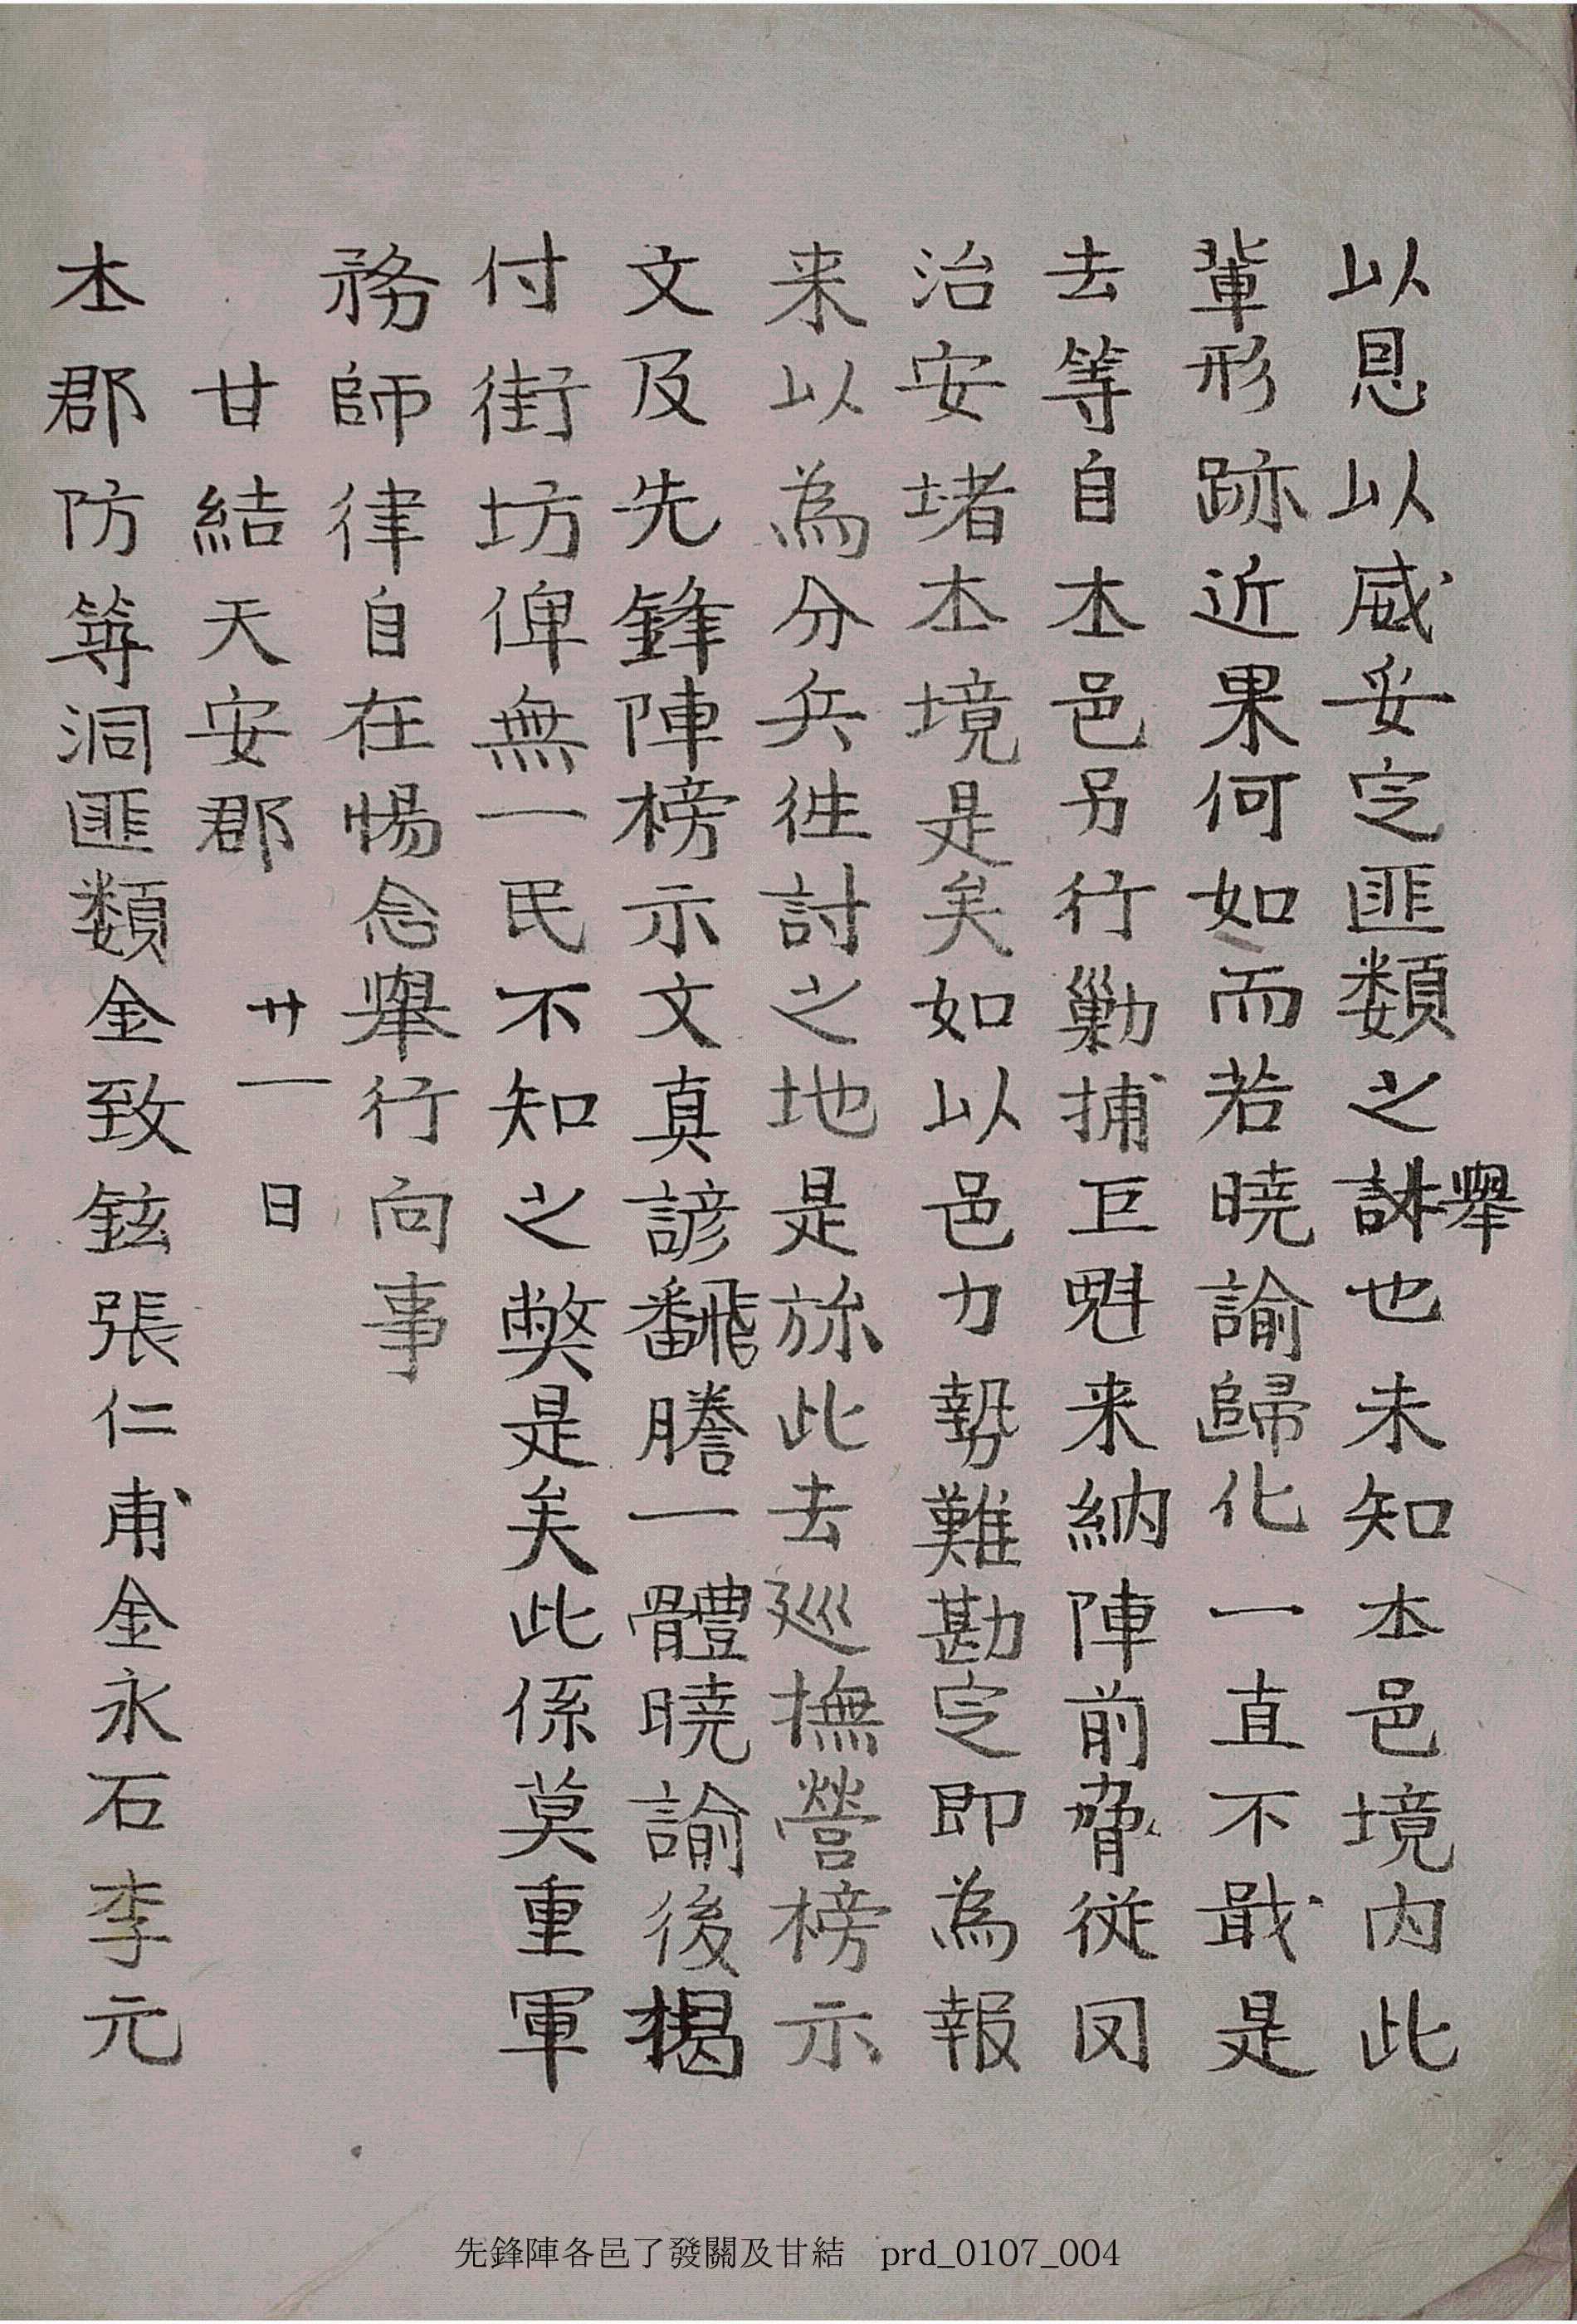 以恩以威妥定匪類之舉也未知本邑境内此
輩形跡近果何如而若曉諭歸化一直不戢是
去等自本邑另行勦捕巨魁来納陣前脅從罔
治安堵本境是矣如以邑力勢難勘定即為報
来以為分兵徃討之地是旀此去巡撫營榜示
文及先鋒陣榜示文真諺飜謄一體曉諭後揭
付街坊俾無一民不知之弊是矣此係莫重軍
務師律自在惕念擧行向事
甘結天安郡 廿一日
本郡防築洞匪類金致鉉張仁甫金永石李元
先鋒陣各邑了發關及甘結 prd_0107_004